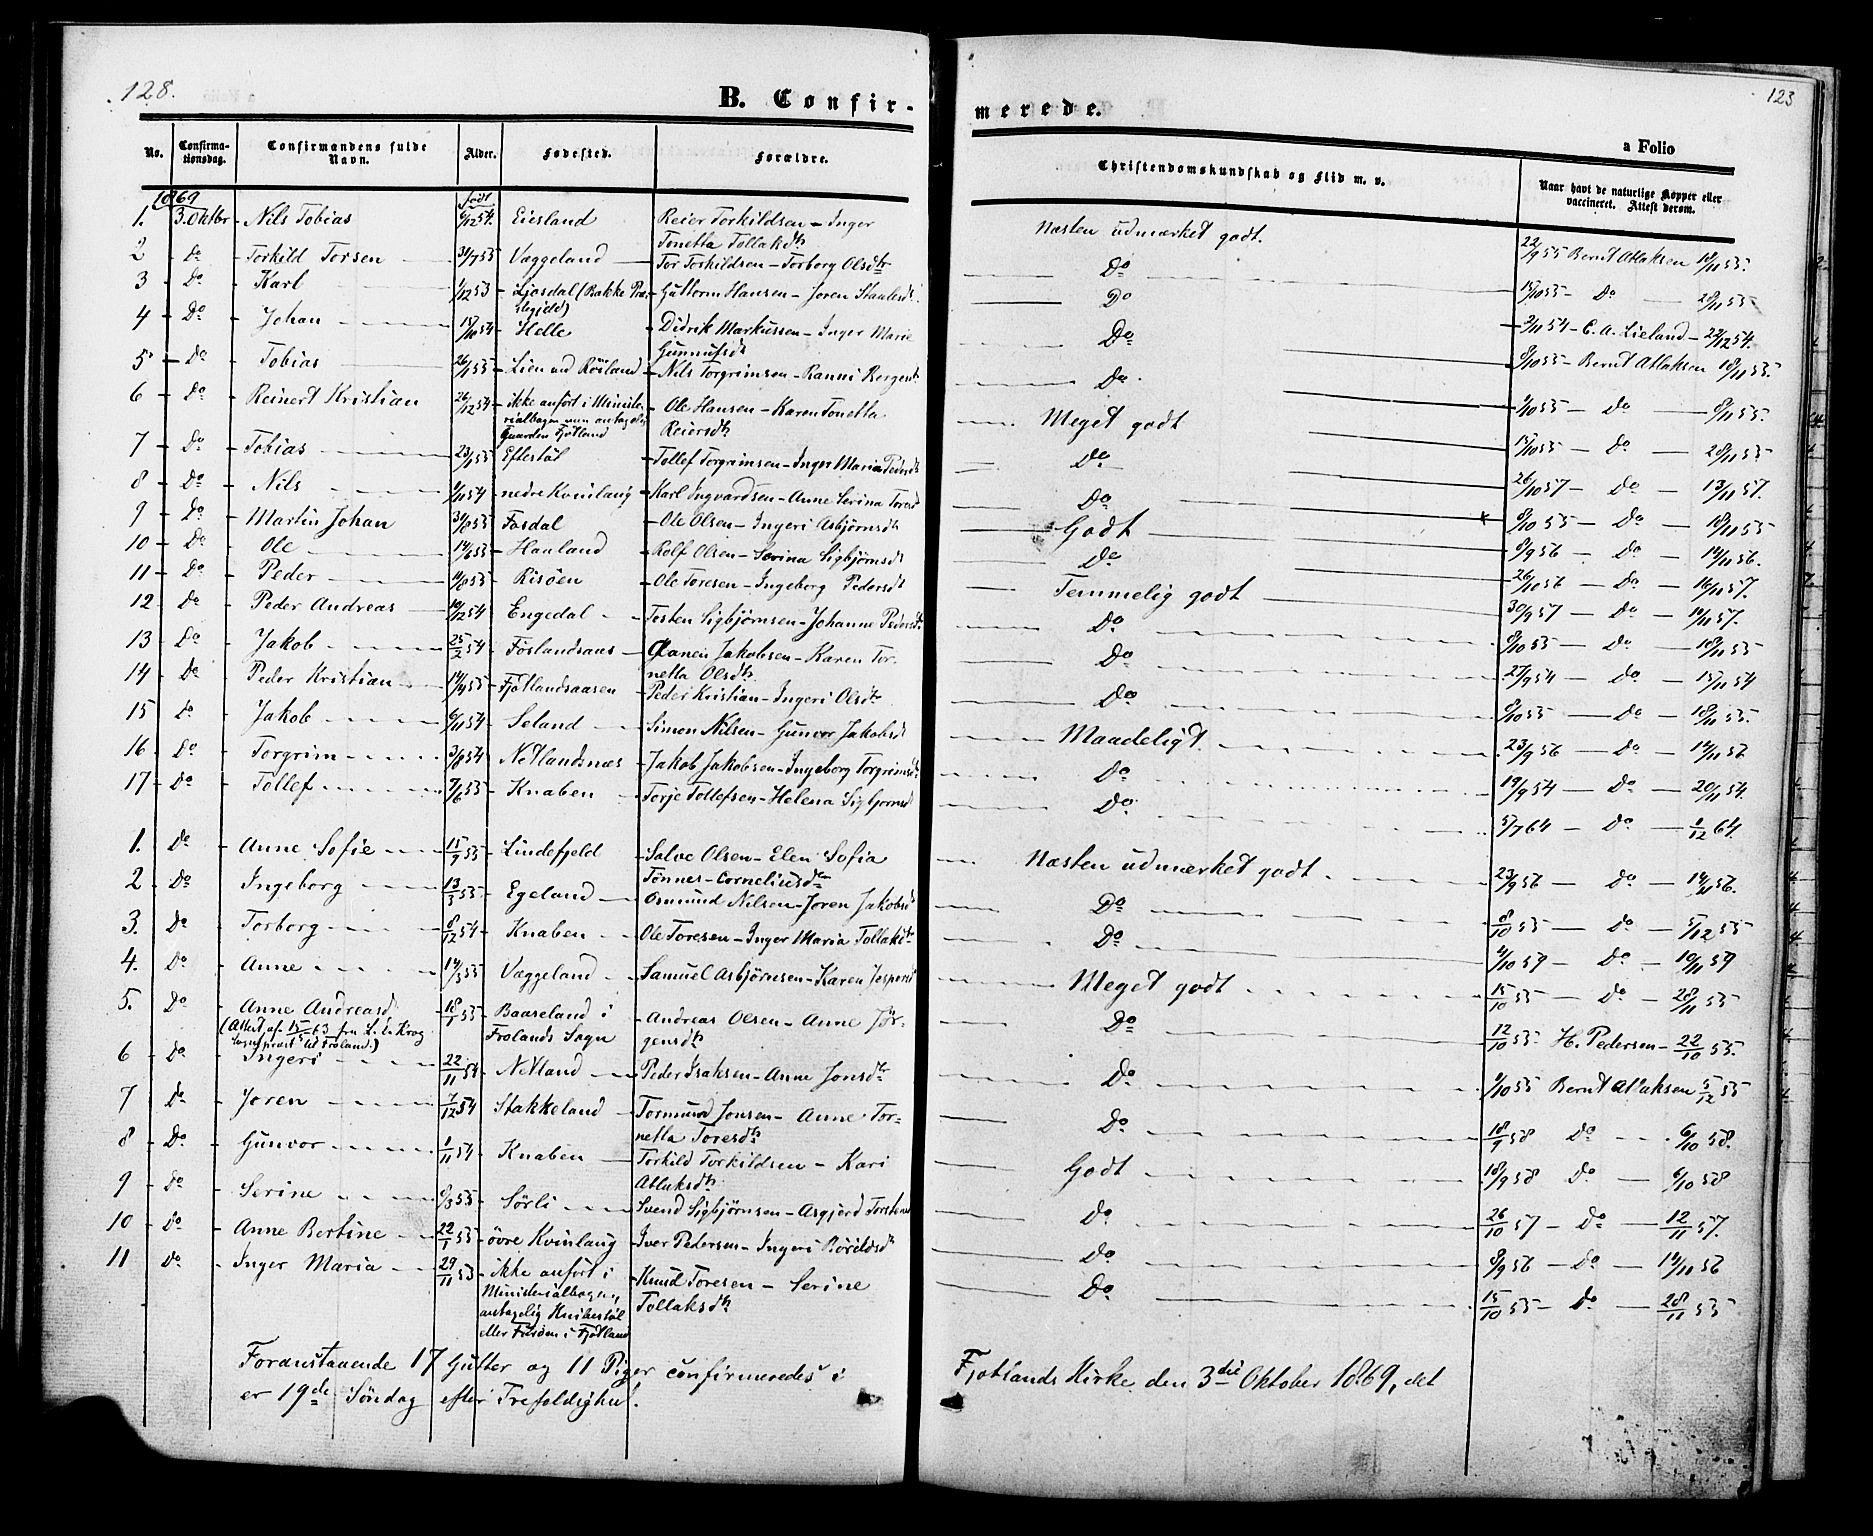 128.
B. Confir-
merede.
123
a Folio
No. Confirma-tionsdag. Confirmandens fulde Navn. Alder. Fødested. Forældre. Christendomskundskab og Flid m. v. Naar havt de naturlige Kopper eller vaccineret. Attest derom.
1869 født
1. 3. Oktbr Nils Tobias 6/12 54. Eiesland Reier Torkildsen - Inger Tonetta Tollaksdtr Næsten udmærket godt. 22/9 55 Bernt Atlaksen 18/11 55.
2 Do Torkild Torsen 31/7 55 Væggeland Tor Torkildsen - Torborg Olsdtr Do 15/10 55 - Do 28/11 55
3 Do Karl 1/12 53 Ljosdal (Bakke Præstegjeld) Guttorm Hansen - Joren Staalesdtr Do 2/11 54 - C. A. Lieland - 22/12 54.
4 Do Johan 15/10 54 Helle Didrik Markussen - Inger Marie Gunnufsdtr Do 8/10 55 - Bernt Atlaksen 18/11 55.
5 Do Tobias 26/1 55 Lien und Røisland Nils Torgrimsen - Ranni Bergesdtr Do 1/10 55 - Do 8/11 55.
6 Do Reinert Kristian 26/12 54 ikke anført i Ministerialbogen men antagelig Gaarden Fjotland Ole Hansen - Karen Tonetta Reiersdtr Meget godt 15/10 55 - Do 28/11 55.
7 Do Tobias 23/1 55 Eftestøl Tollef Torgrimsen - Inger Maria Pedersdtr Do 26/10 57 - Do 13/11 57.
8 Do Nils 1/10 54 nedre Kvinlaug Karl Ingvardsen - Anne Serina Toresdtr Do 8/10 55 - Do 18/11 55
9 Do Martin Johan 30/8 55 Fosdal Ole Olsen - Ingeri Asbjørnsdtr Godt 8/9 56 - Do 14/11 56.
10 Do Ole 14/6 53 Hauland Rolf Olsen - Serina Sigbjørnsdtr Do 26/10 56 - Do 16/11 57.
11 Do Peder 11/8 55 Risøen Ole Toresen - Ingeborg Pedersdtr Temmelig godt 30/9 57 - Do 14/11 57.
12 Do Peder Andreas 19/2 54 Engedal Tosten Sigbjørnsen - Johanne Pedersdtr Do 8/10 55 - Do 18/11 55
13 Do Jakob 25/2 54 Føslandsaas Jakobsen - Karen Tornetta Olsdtr Do 27/9 54 - Do 15/11 54
14 Do Peder Kristian 14/4 55 Fjotlandsaasen Peder Kristian - Ingeri Olsdtr Do 8/10 55 - Do 18/11 55.
15 Do Jakob 6/11 54 Seland Simon Nilsen - Gunvor Jakobsdtr Maadeligt 23/9 56 - Do 14/11 56
16 Do Torgrim 3/8 54 Netlandsnæs Jakob Jakobsen - Ingeborg Torgrimsdtr Do 19/9 54 - Do 20/11 54.
17 Do Tollef 7/6 55 Knaben Torje Tollefsen - Helena Sigbjørnsdtr Do 5/7 64 - Do 1/12 64.
1. Do Anne Sofie 15/9 55 Lindefjeld Salve Olsen - Elen Sofia Tønnes-Corneliusdtr Næsten udmærket godt 23/9 56 - Do 14/11 56.
2 Do Ingeborg 13/3 55 Egeland Osmund Nilsen - Joren Jakobsdtr Do 8/10 55 - Do 5/12 55
3. Do Torborg 8/12 54 Knaben Ole Toresen - Inger Maria Tollaksdtr Do 4/10 59 - Do 10/11 59
4. Do Anne 14/3 55 Væggeland Samuel Asbjørnsen - Karen Jespersdtr Meget godt 15/10 55 - Do 28/11 55
5. Do Anne Andreasd. 18/1 55 Baaseland i Frolands Sogn Andreas Olsen - Anne Jørgensdtr Do 12/10 55 H. Pedersen - 22/10 55.
(Attest af 15/5 63 fra L. E. Krog Sognepræst til Froland.)
6 Do Ingeri 22/11 54 Netland Peder Isaksen - Anne Jonsdtr Do 1/10 55 Bernt Atlaksen 5/12 55
7 Do Joren 7/12 54 Stakkeland Tormund Jonsen - Anne Tornetta Toresdtr Do 18/9 58 Do 6/10 58.
8 Do Gunvor 1/11 54 Knaben Torkild Torkildsen - Kari Atlaksdtr Godt 18/9 58 Do 6/10 58
9 Do Serine 8/3 55 Sørli Svend Sigbjørnsen - Asgjerd Torstensd Do 26/10 57 - Do 12/11 57.
10 Do Anne Bertine 22/1 55 øvre Kvinlaug Iver Pedersen - Ingeri Do 8/9 56 - Do 14/11 56
11 Do Inger Maria 29/11 53 ikke anført i Ministerialbogen, antagelig Knibestøl eller i Fjotland Knud Toresen - Serine Tollaksdtr Do 15/10 55 - Do 28/11 55
Foranstaaende 17 Gutter og 11 Piger confirmeredes i Fjotlands Kirke den 3die Oktober 1869, det
er 19de Søndag efter Trefoldighed.